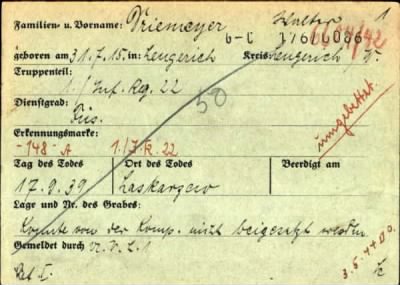 Familien- u. Vorname: Triemeyer Walter 1
6-C 176/6086
geboren am 31.7.15. in: Lengerich Kreis: Lengerich
Truppenteil:
1./Inf. Reg. 22
Dienstgrad: 50
Füs.
umgebettet.
Erkennungsmarke:
-148- A 1./J.R. 22
Tag des Todes Ort des Todes Beerdigt am
17.9.39 Laskarzew
Lage und Nr. des Grabes:
Konnte von der Komp. nicht beigesetzt werden
Gemeldet durch V.L.1
3.6.44